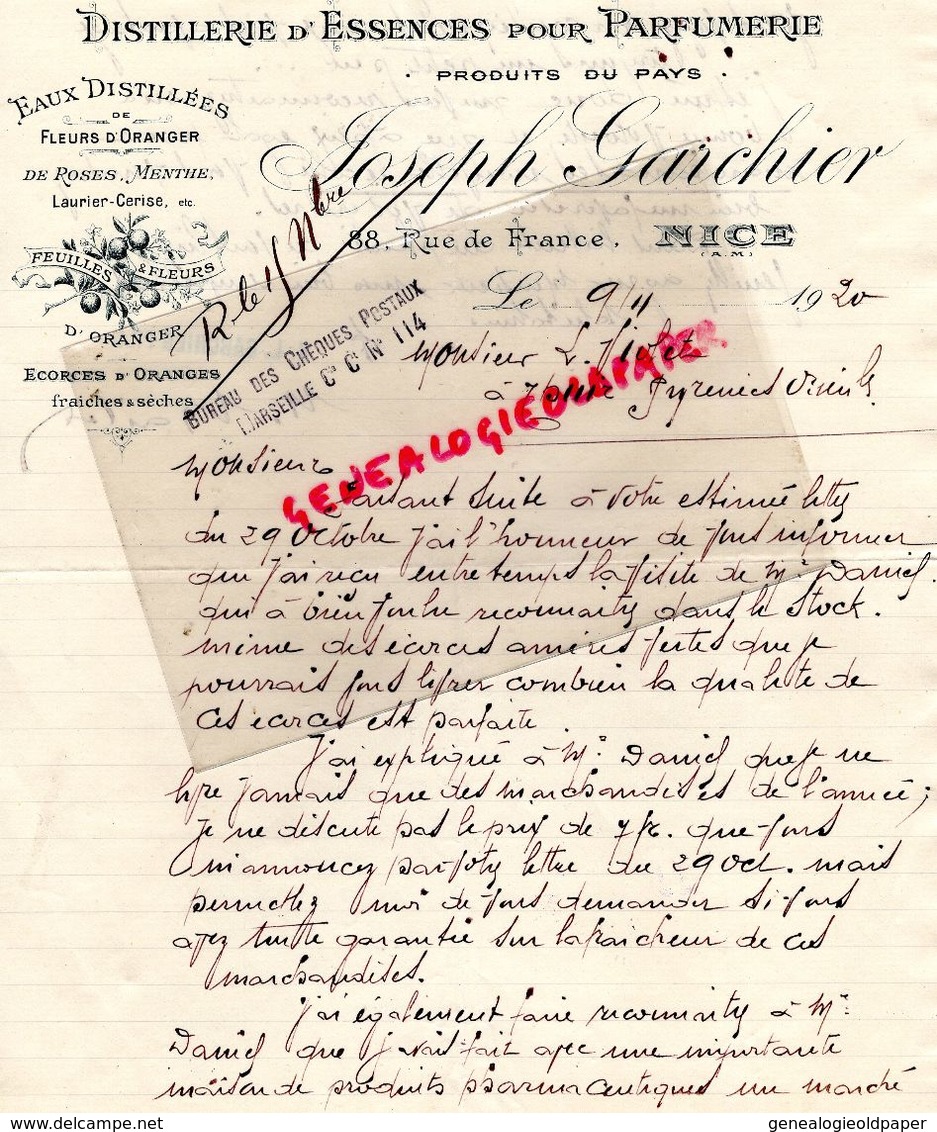 DISTILLERIE D'ESSENCES POUR PARFUMERIE
· PRODUITS DU PAYS ·
EAUX DISTILLÉES
DE
FLEURS D'ORANGER
DE ROSES, MENTHE,
Laurier-Cerise, etc.
FEUILLES & FLEURS
D'ORANGER
ECORCES D'ORANGES
fraiches & sèches
Joseph Garchier
88, Rue de France, NICE
(A.M.)
R le 15 Nbre
Le 9/11 1920
BUREAU DES CHÈQUES POSTAUX
MARSEILLE Cte Ct No 114
Monsieur L. Violet
à Thuir Pyrenies Orient.
GENEALOGIEOLDPAPER
Monsieur
Faisant suite à votre estimée lettre
du 29 Octobre j'ai l'honneur de vous informer
que j'ai reçu entre temps la visite de Mr. Daniel.
qui à bien voulu reconnaitre dans le stock.
même des écorces amères vertes que je
pourrais vous livrer combien la qualité de
ces écorces est parfaite.
J'ai expliqué à Mr. Daniel que je ne
livre jamais que des marchandises de l'année;
je ne discute pas le prix de 7 fr. que vous
m'annoncez par votre lettre du 29 Oct. mais
permettez moi de vous demander si vous
avez toute garantie sur la fraicheur de ces
marchandises.
J'ai également faire reconnaitre à Mr.
Daniel que j'avais fait avec une importante
maison de produits pharmaceutiques un marché
delcampe.net
genealogieoldpaper